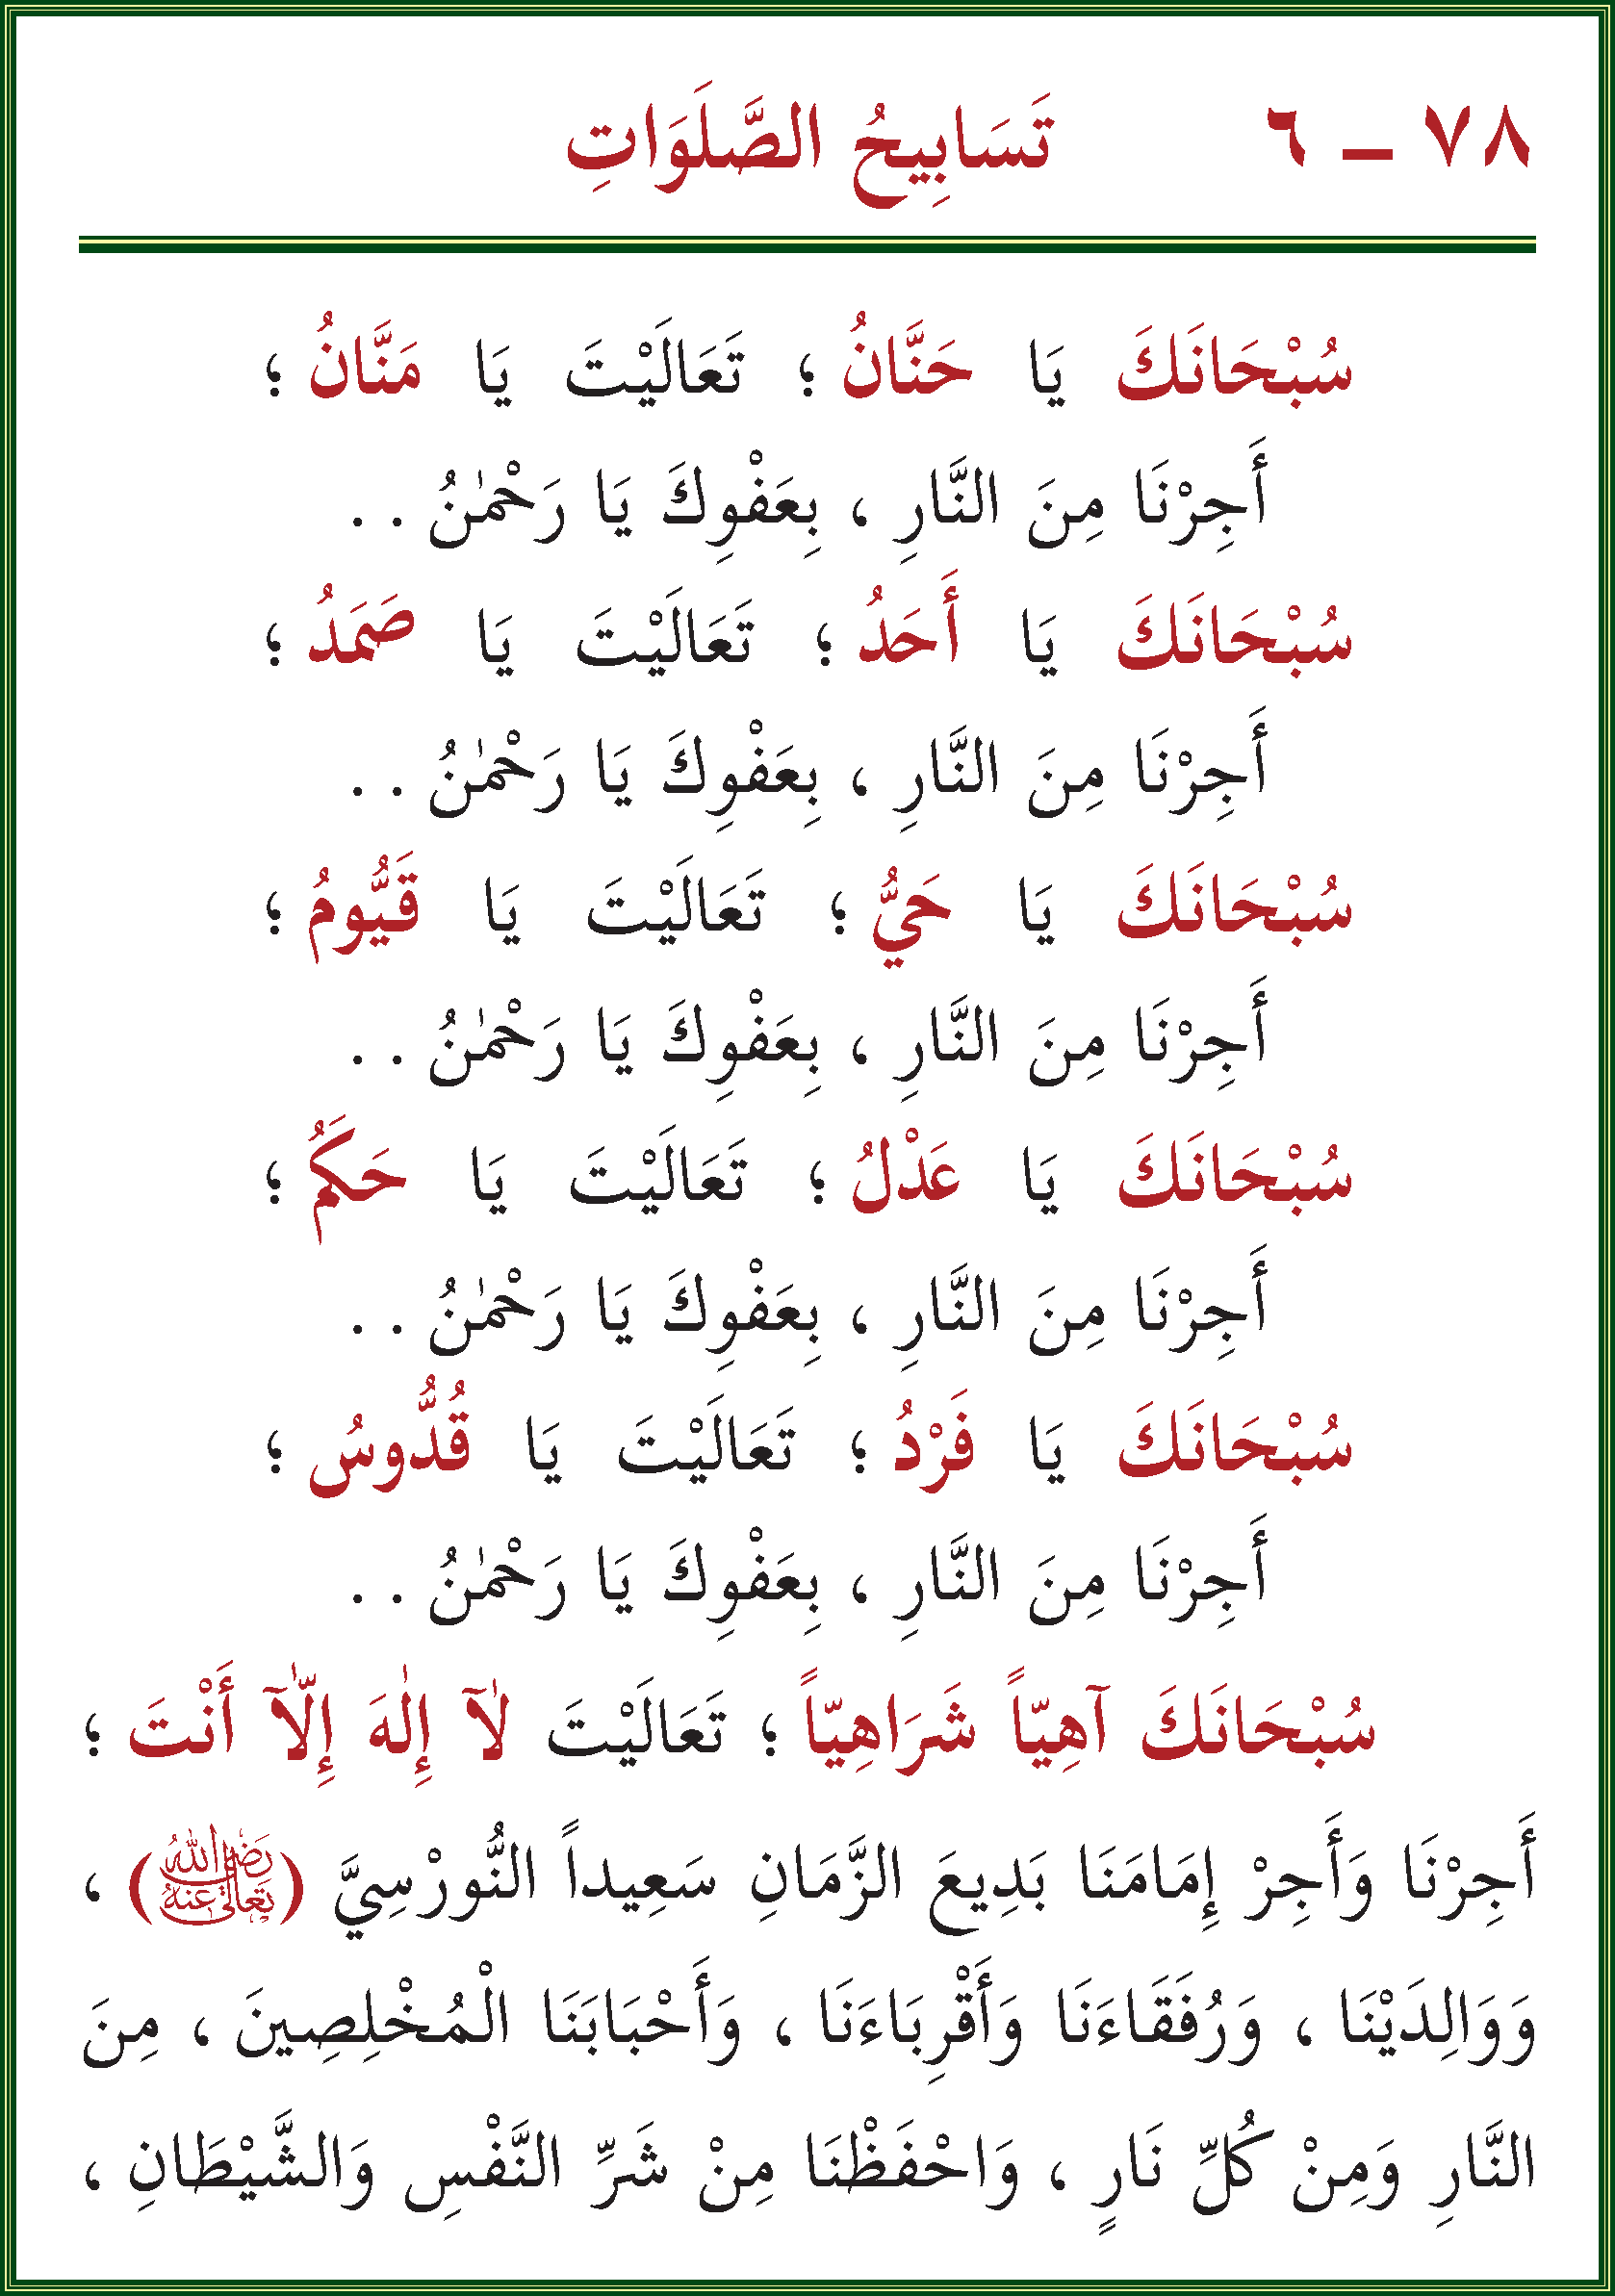 ٧٨ ـ ٦ تَسَابِيحُ الصَّلَوَاتِ
سُبْحَانَكَ يَا حَنَّانُ ؛ تَعَالَيْتَ يَا مَنَّانُ ؛
أَجِرْنَا مِنَ النَّارِ ، بِعَفْوِكَ يَا رَحْمٰنُ . .
سُبْحَانَكَ يَا أَحَدُ ؛ تَعَالَيْتَ يَا صَمَدُ ؛
أَجِرْنَا مِنَ النَّارِ ، بِعَفْوِكَ يَا رَحْمٰنُ . .
سُبْحَانَكَ يَا حَيُّ ؛ تَعَالَيْتَ يَا قَيُّومُ ؛
أَجِرْنَا مِنَ النَّارِ ، بِعَفْوِكَ يَا رَحْمٰنُ . .
سُبْحَانَكَ يَا عَدْلُ ؛ تَعَالَيْتَ يَا حَكَمُ ؛
أَجِرْنَا مِنَ النَّارِ ، بِعَفْوِكَ يَا رَحْمٰنُ . .
سُبْحَانَكَ يَا فَرْدُ ؛ تَعَالَيْتَ يَا قُدُّوسُ ؛
أَجِرْنَا مِنَ النَّارِ ، بِعَفْوِكَ يَا رَحْمٰنُ . .
سُبْحَانَكَ آهِيّاً شَرَاهِيّاً ؛ تَعَالَيْتَ لآٰ إِلٰهَ إِلآّٰ أَنْتَ ؛
أَجِرْنَا وَأَجِرْ إِمَامَنَا بَدِيعَ الزَّمَانِ سَعِيداً النُّورْسِيَّ (رَضِيَ اللّٰهُ تَعَالٰى عَنْهُ) ،
وَوَالِدَيْنَا ، وَرُفَقَاءَنَا وَأَقْرِبَاءَنَا ، وَأَحْبَابَنَا الْمُخْلِصِينَ ، مِنَ
النَّارِ وَمِنْ كُلِّ نَارٍ ، وَاحْفَظْنَا مِنْ شَرِّ النَّفْسِ وَالشَّيْطَانِ ،